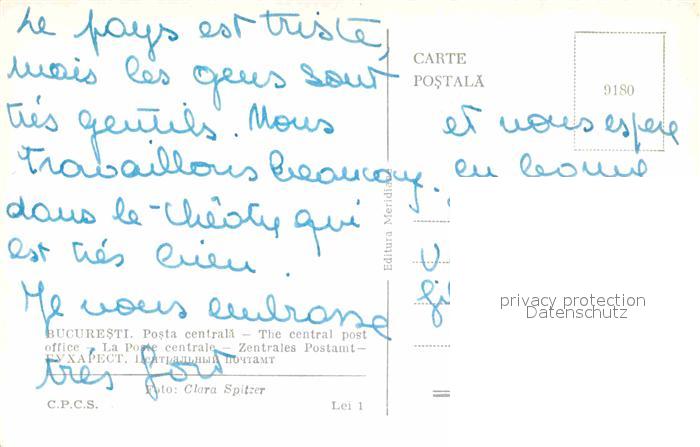 Le pays est triste,
mais les gens sont
très gentils. Nous
travaillons beaucoup.
dans le théâtre qui
est très bien.
Je vous embrasse
très fort
et vous espere
en bonne
CARTE
POȘTALĂ
9180
Editura Meridiane
privacy protection
Datenschutz
BUCUREȘTI. Poșta centrală — The central post
office — La Poste centrale — Zentrales Postamt—
БУХАРЕСТ. Центральный почтамт
Foto: Clara Spitzer
C.P.C.S.
Lei 1